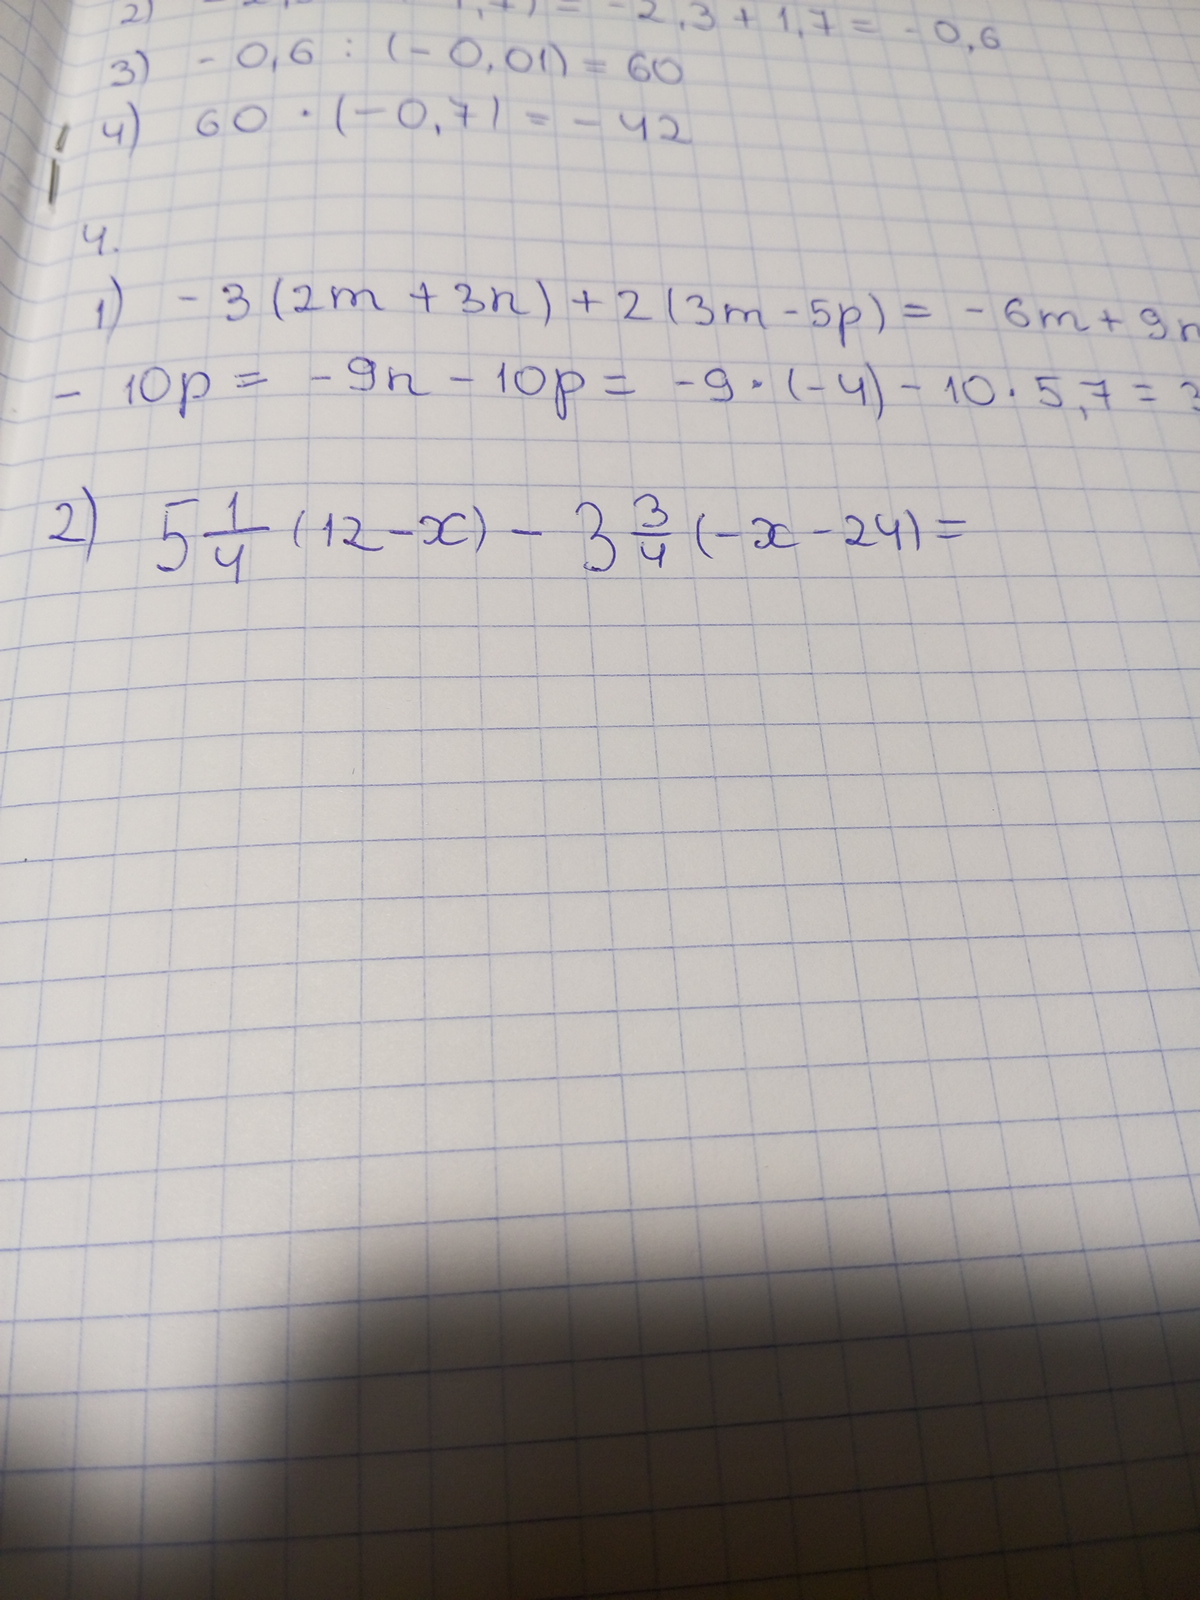 2) = -2,3 + 1,7 = -0,6
3) -0,6 : (-0,01) = 60
4) 60 · (-0,7) = -42
4.
1) -3(2m + 3n) + 2(3m - 5p) = -6m + 9n
- 10p = -9n - 10p = -9 · (-4) - 10 · 5,7 = 3
2) 5 1/4 (12 - x) - 3 3/4 (-x - 24) =